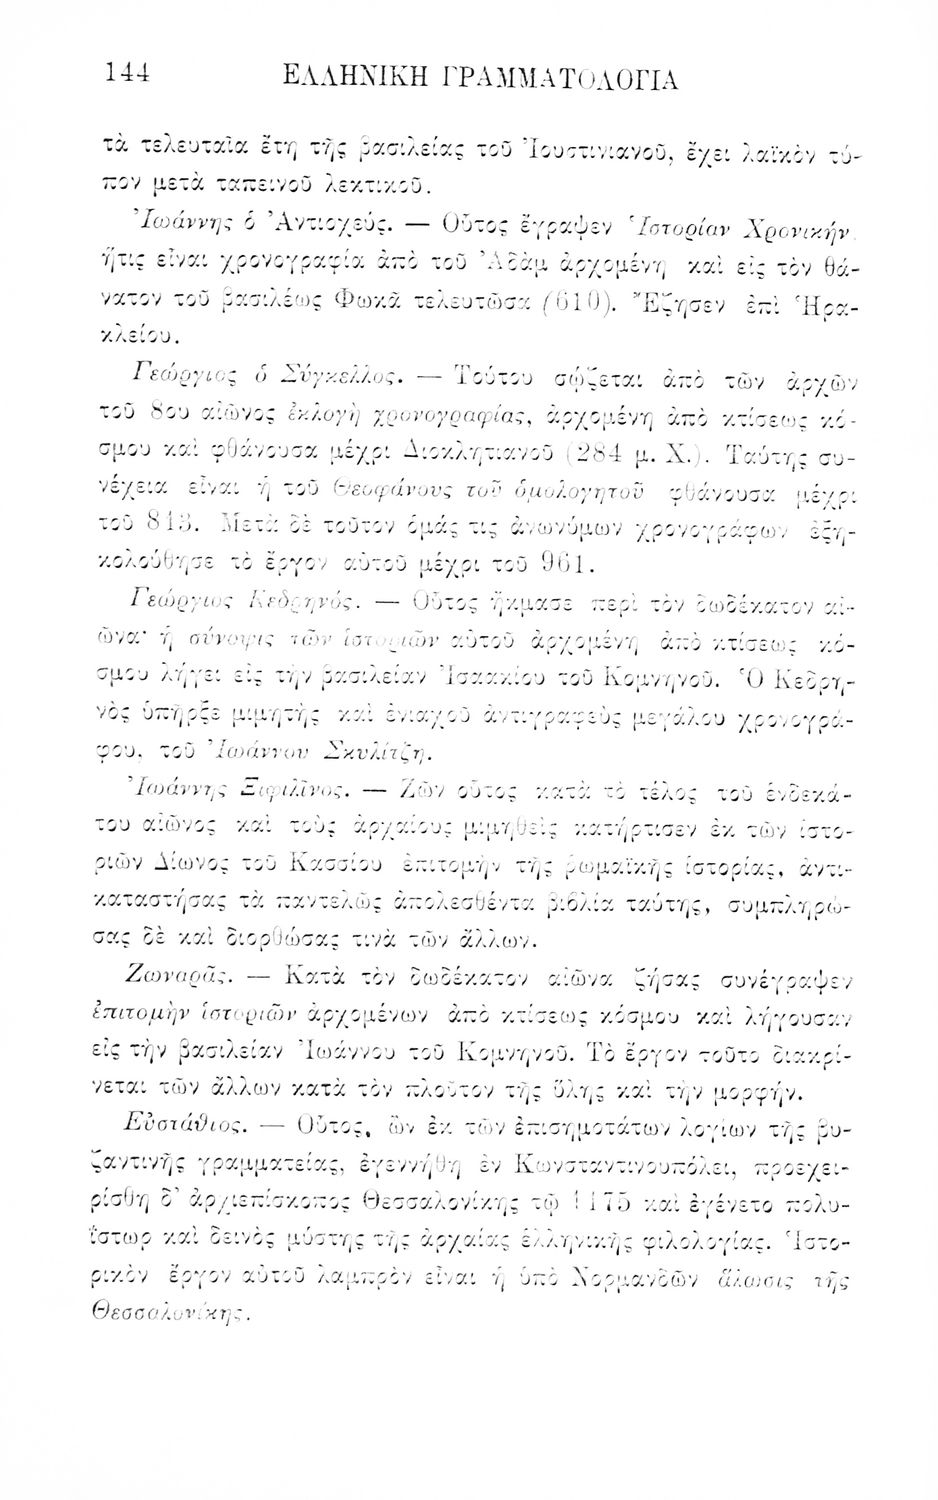 144 ΕΛΛΗΝΙΚΗ ΓΡΑΜΜΑΤΟΛΟΓΙΑ
τὰ τελευταῖα ἔτη τῆς βασιλείας τοῦ Ἰουστινιανοῦ, ἔχει λαϊκὸν τύ-
πον μετὰ ταπεινοῦ λεκτικοῦ.
Ἰωάννης ὁ Ἀντιοχεύς. — Οὗτος ἔγραψεν Ἱστορίαν Χρονικήν
ἥτις εἶναι χρονογραφία ἀπὸ τοῦ Ἀδὰμ ἀρχομένη καὶ εἰς τὸν θά-
νατον τοῦ βασιλέως Φωκᾶ τελευτῶσα (610). Ἔζησεν ἐπὶ Ἡρα-
κλείου.
Γεώργιος ὁ Σύγκελλος. — Τούτου σῴζεται ἀπὸ τῶν ἀρχῶν
τοῦ 8ου αἰῶνος ἐκλογὴ χρονογραφίας, ἀρχομένη ἀπὸ κτίσεως κό-
σμου καὶ φθάνουσα μέχρι Διοκλητιανοῦ (284 μ. Χ.). Ταύτης συ-
νέχεια εἶναι ἡ τοῦ Θεοφάνους τοῦ ὁμολογητοῦ φθάνουσα μέχρι
τοῦ 813. Μετὰ δὲ τοῦτον ὁμάς τις ἀνωνύμων χρονογράφων ἐξη-
κολούθησε τὸ ἔργον αὐτοῦ μέχρι τοῦ 961.
Γεώργιος Κεδρηνός. — Οὗτος ἤκμασε περὶ τὸν δωδέκατον αἰ-
ῶνα· ἡ σύνοψις τῶν ἱστοριῶν αὐτοῦ ἀρχομένη ἀπὸ κτίσεως κό-
σμου λήγει εἰς τὴν βασιλείαν Ἰσαακίου τοῦ Κομνηνοῦ. Ὁ Κεδρη-
νὸς ὑπῆρξε μιμητὴς καὶ ἐνιαχοῦ ἀντιγραφεὺς μεγάλου χρονογρά-
φου, τοῦ Ἰωάννου Σκυλίτζη.
Ἰωάννης Ξιφιλῖνος. — Ζῶν οὗτος κατὰ τὸ τέλος τοῦ ἑνδεκά-
του αἰῶνος καὶ τοὺς ἀρχαίους μιμηθεὶς κατήρτισεν ἐκ τῶν ἱστο-
ριῶν Δίωνος τοῦ Κασσίου ἐπιτομὴν τῆς ῥωμαϊκῆς ἱστορίας, ἀντι-
καταστήσας τὰ παντελῶς ἀπολεσθέντα βιβλία ταύτης, συμπληρώ-
σας δὲ καὶ διορθώσας τινὰ τῶν ἄλλων.
Ζωναρᾶς. — Κατὰ τὸν δωδέκατον αἰῶνα ζήσας συνέγραψεν
ἐπιτομὴν ἱστοριῶν ἀρχομένων ἀπὸ κτίσεως κόσμου καὶ λήγουσαν
εἰς τὴν βασιλείαν Ἰωάννου τοῦ Κομνηνοῦ. Τὸ ἔργον τοῦτο διακρί-
νεται τῶν ἄλλων κατὰ τὸν πλοῦτον τῆς ὕλης καὶ τὴν μορφήν.
Εὐστάθιος. — Οὗτος, ὢν ἐκ τῶν ἐπισημοτάτων λογίων τῆς βυ-
ζαντινῆς γραμματείας, ἐγεννήθη ἐν Κωνσταντινουπόλει, προεχει-
ρίσθη δ' ἀρχιεπίσκοπος Θεσσαλονίκης τῷ 1175 καὶ ἐγένετο πολυ-
ΐστωρ καὶ δεινὸς μύστης τῆς ἀρχαίας ἑλληνικῆς φιλολογίας. Ἱστο-
ρικὸν ἔργον αὐτοῦ λαμπρὸν εἶναι ἡ ὑπὸ Νορμανδῶν ἅλωσις τῆς
Θεσσαλονίκης.